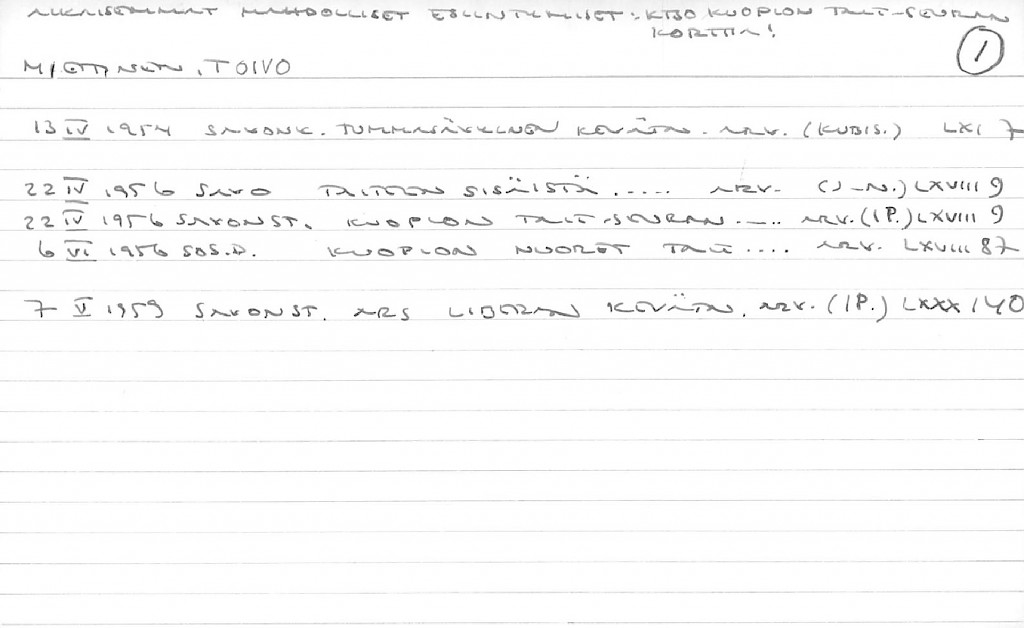 AIKAISEMMAT MAHDOLLISET ESIINTYMISET: KTSO KUOPION TAIT-SEURAN
KORTTIA!
1
MIETTINEN, TOIVO
13 IV 1954 SAVONK. TUMMASÄVELINEN KEVÄTN. ARV. (KUBIS.) LXI 7
22 IV 1956 SAVO TAITEEN SISÄISTÄ ..... ARV. (J-N.) LXVIII 9
22 IV 1956 SAVONST. KUOPION TAIT-SEURAN .... ARV. (IP.) LXVIII 9
6 VI 1956 SOS.D. KUOPION NUORET TAIT .... ARV. LXVIII 87
7 V 1959 SAVONST. ARS LIBERAN KEVÄTN. ARV. (IP.) LXXX 140